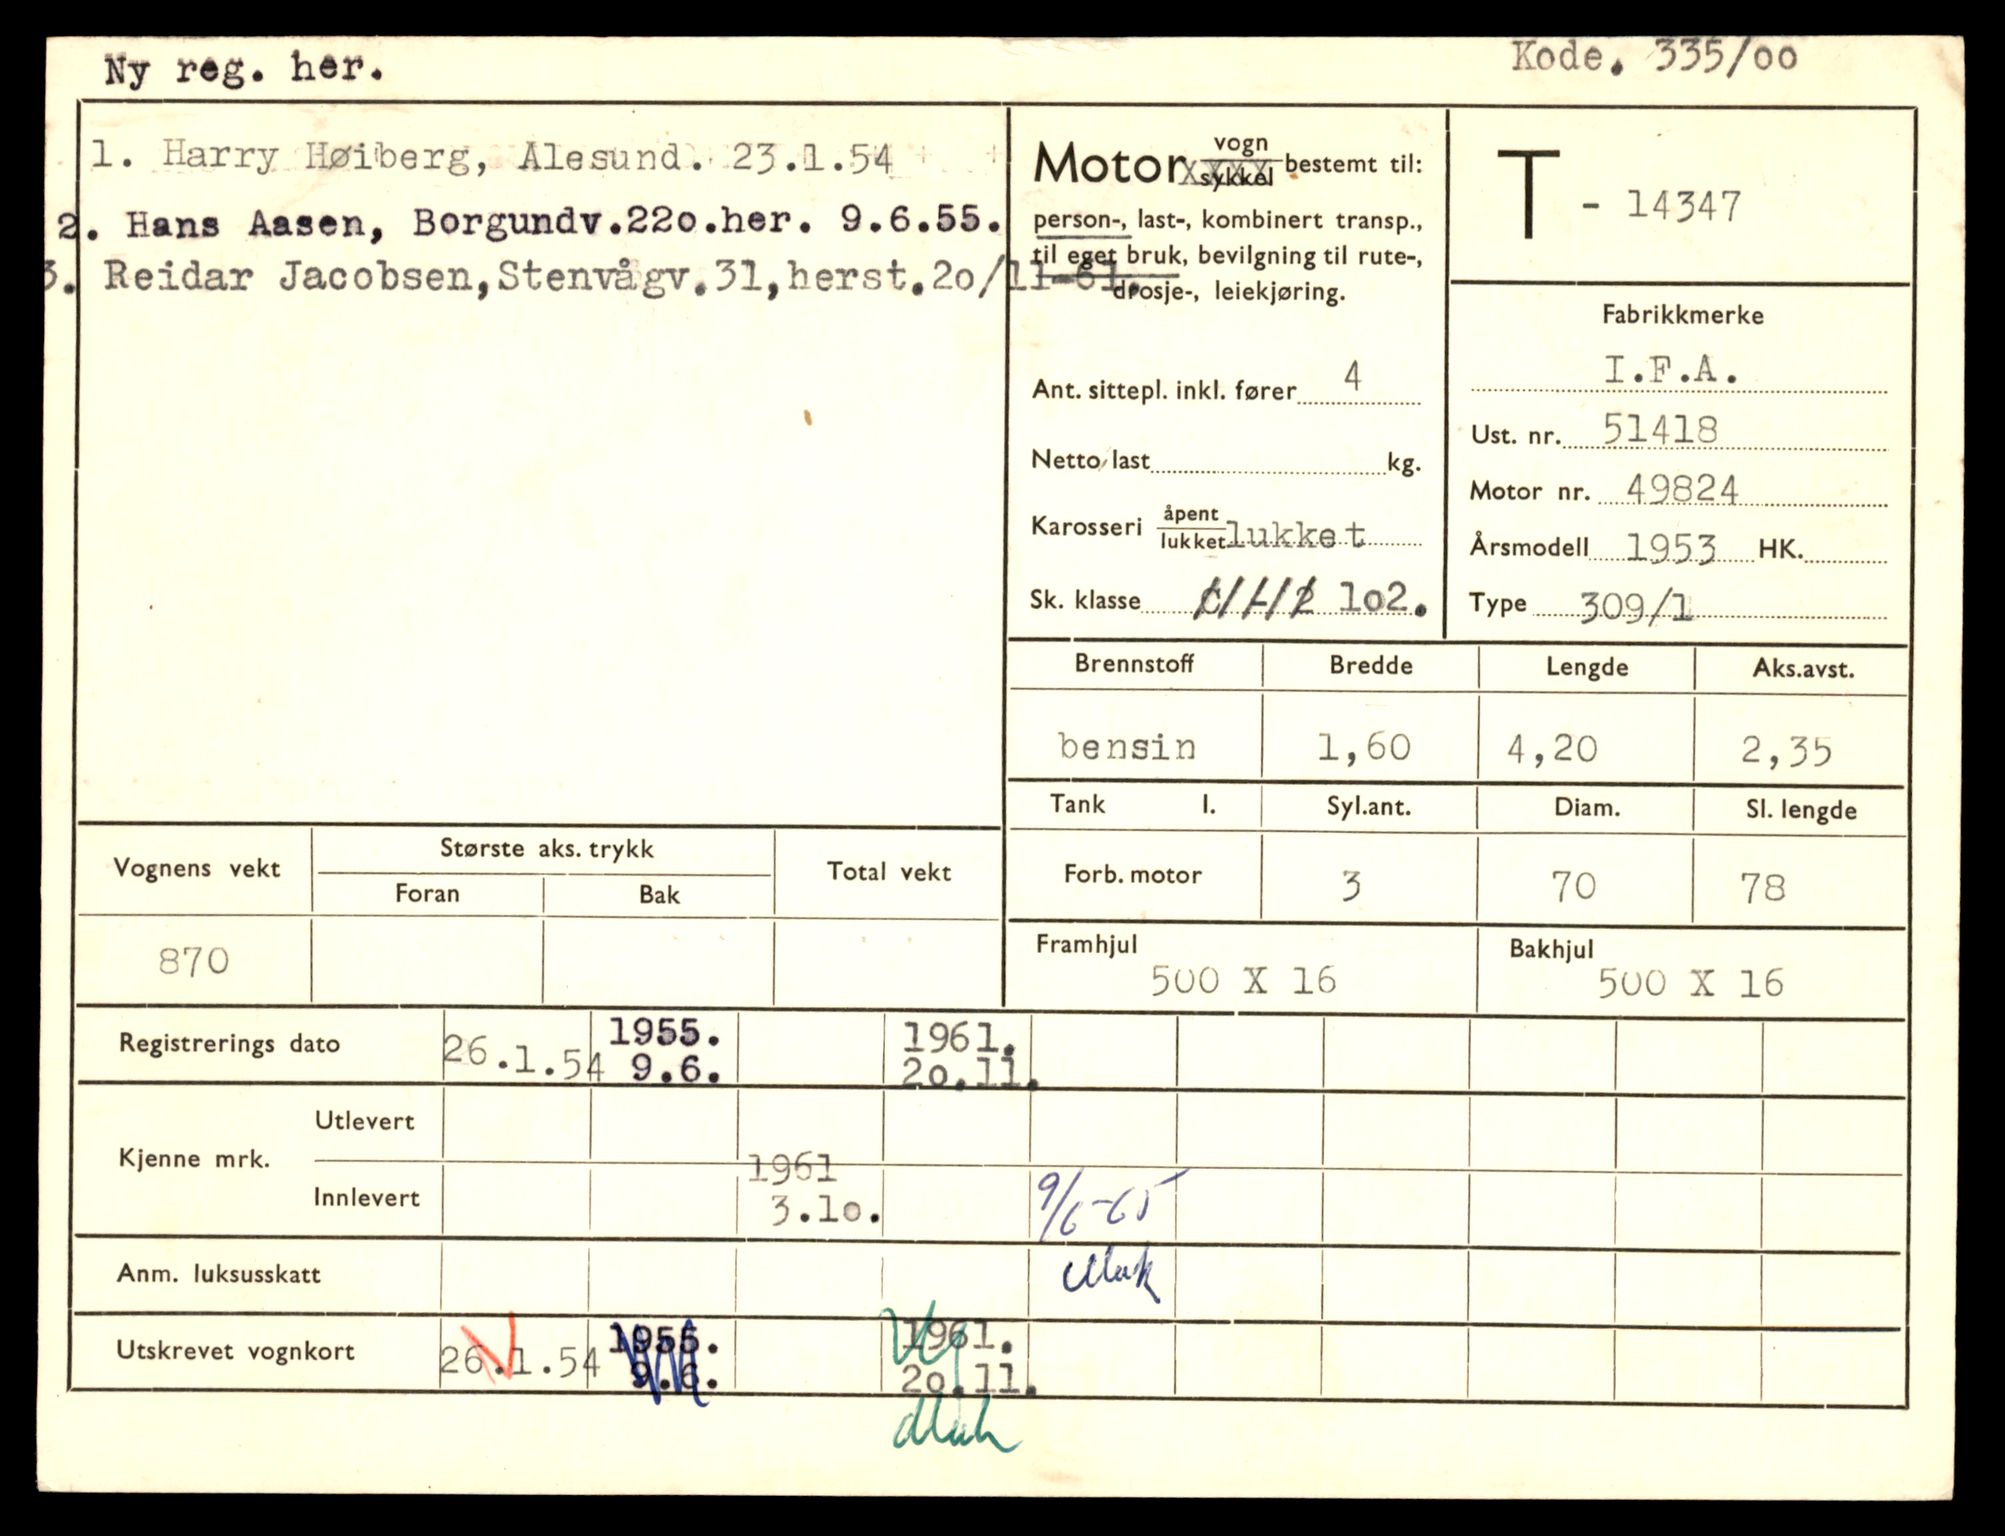 Ny reg. her.
Kode. 335/oo
1. Harry Høiberg, Alesund. 23.1.54
2. Hans Aasen, Borgundv.22o.her. 9.6.55.
3. Reidar Jacobsen,Stenvågv.31,herst.2o/11-61.
Motor vogn sykkel bestemt til:
person-, last-, kombinert transp.,
til eget bruk, bevilgning til rute-,
drosje-, leiekjøring.
Ant. sittepl. inkl. fører 4
Netto last kg.
Karosseri åpent lukket lukket
Sk. klasse 1o2.
T - 14347
Fabrikkmerke
I.F.A.
Ust. nr. 51418
Motor nr. 49824
Årsmodell 1953 HK.
Type 309/1
Brennstoff Bredde Lengde Aks.avst.
bensin 1,60 4,20 2,35
Tank l. Syl.ant. Diam. Sl. lengde
Forb. motor 3 70 78
Framhjul Bakhjul
500 X 16 500 X 16
Vognens vekt Største aks. trykk Total vekt
Foran Bak
870
Registrerings dato 26.1.54 1955. 9.6. 1961. 2o.11.
Kjenne mrk. Utlevert
Innlevert 1961 3.1o. 9/6-65
Anm. luksusskatt
Utskrevet vognkort 26.1.54 1955. 9.6. 1961. 2o.11.